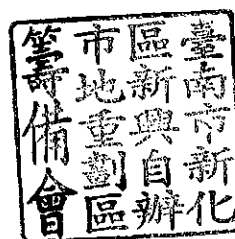 臺南市新化
區新興自辦
市地重劃區
籌備會